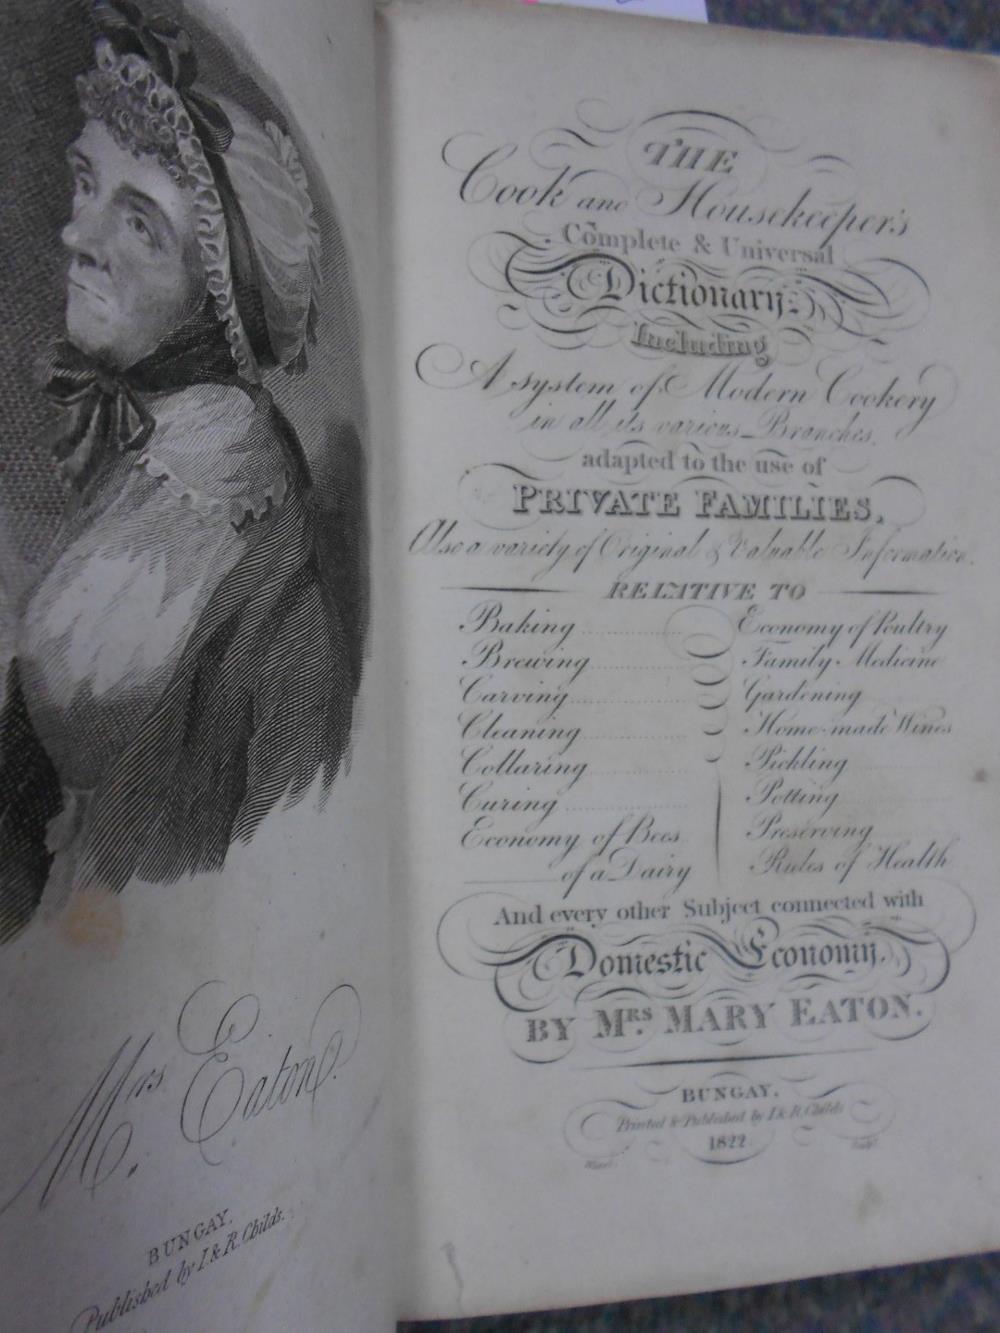 Mrs Eaton.
BUNGAY,
Published by I. & R. Childs.
THE
Cook and Housekeeper's
Complete & Universal
Dictionary;
Including
A system of Modern Cookery
in all its various Branches,
adapted to the use of
PRIVATE FAMILIES,
Also a variety of Original & Valuable Information.
RELATIVE TO
Baking
Brewing
Carving
Cleaning
Collaring
Curing
Economy of Bees
of a Dairy
Economy of Poultry
Family Medicine
Gardening
Home-made Wines
Pickling
Potting
Preserving
Rules of Health
And every other Subject connected with
Domestic Economy.
BY MRS MARY EATON.
BUNGAY,
Printed & Published by I. & R. Childs
1822